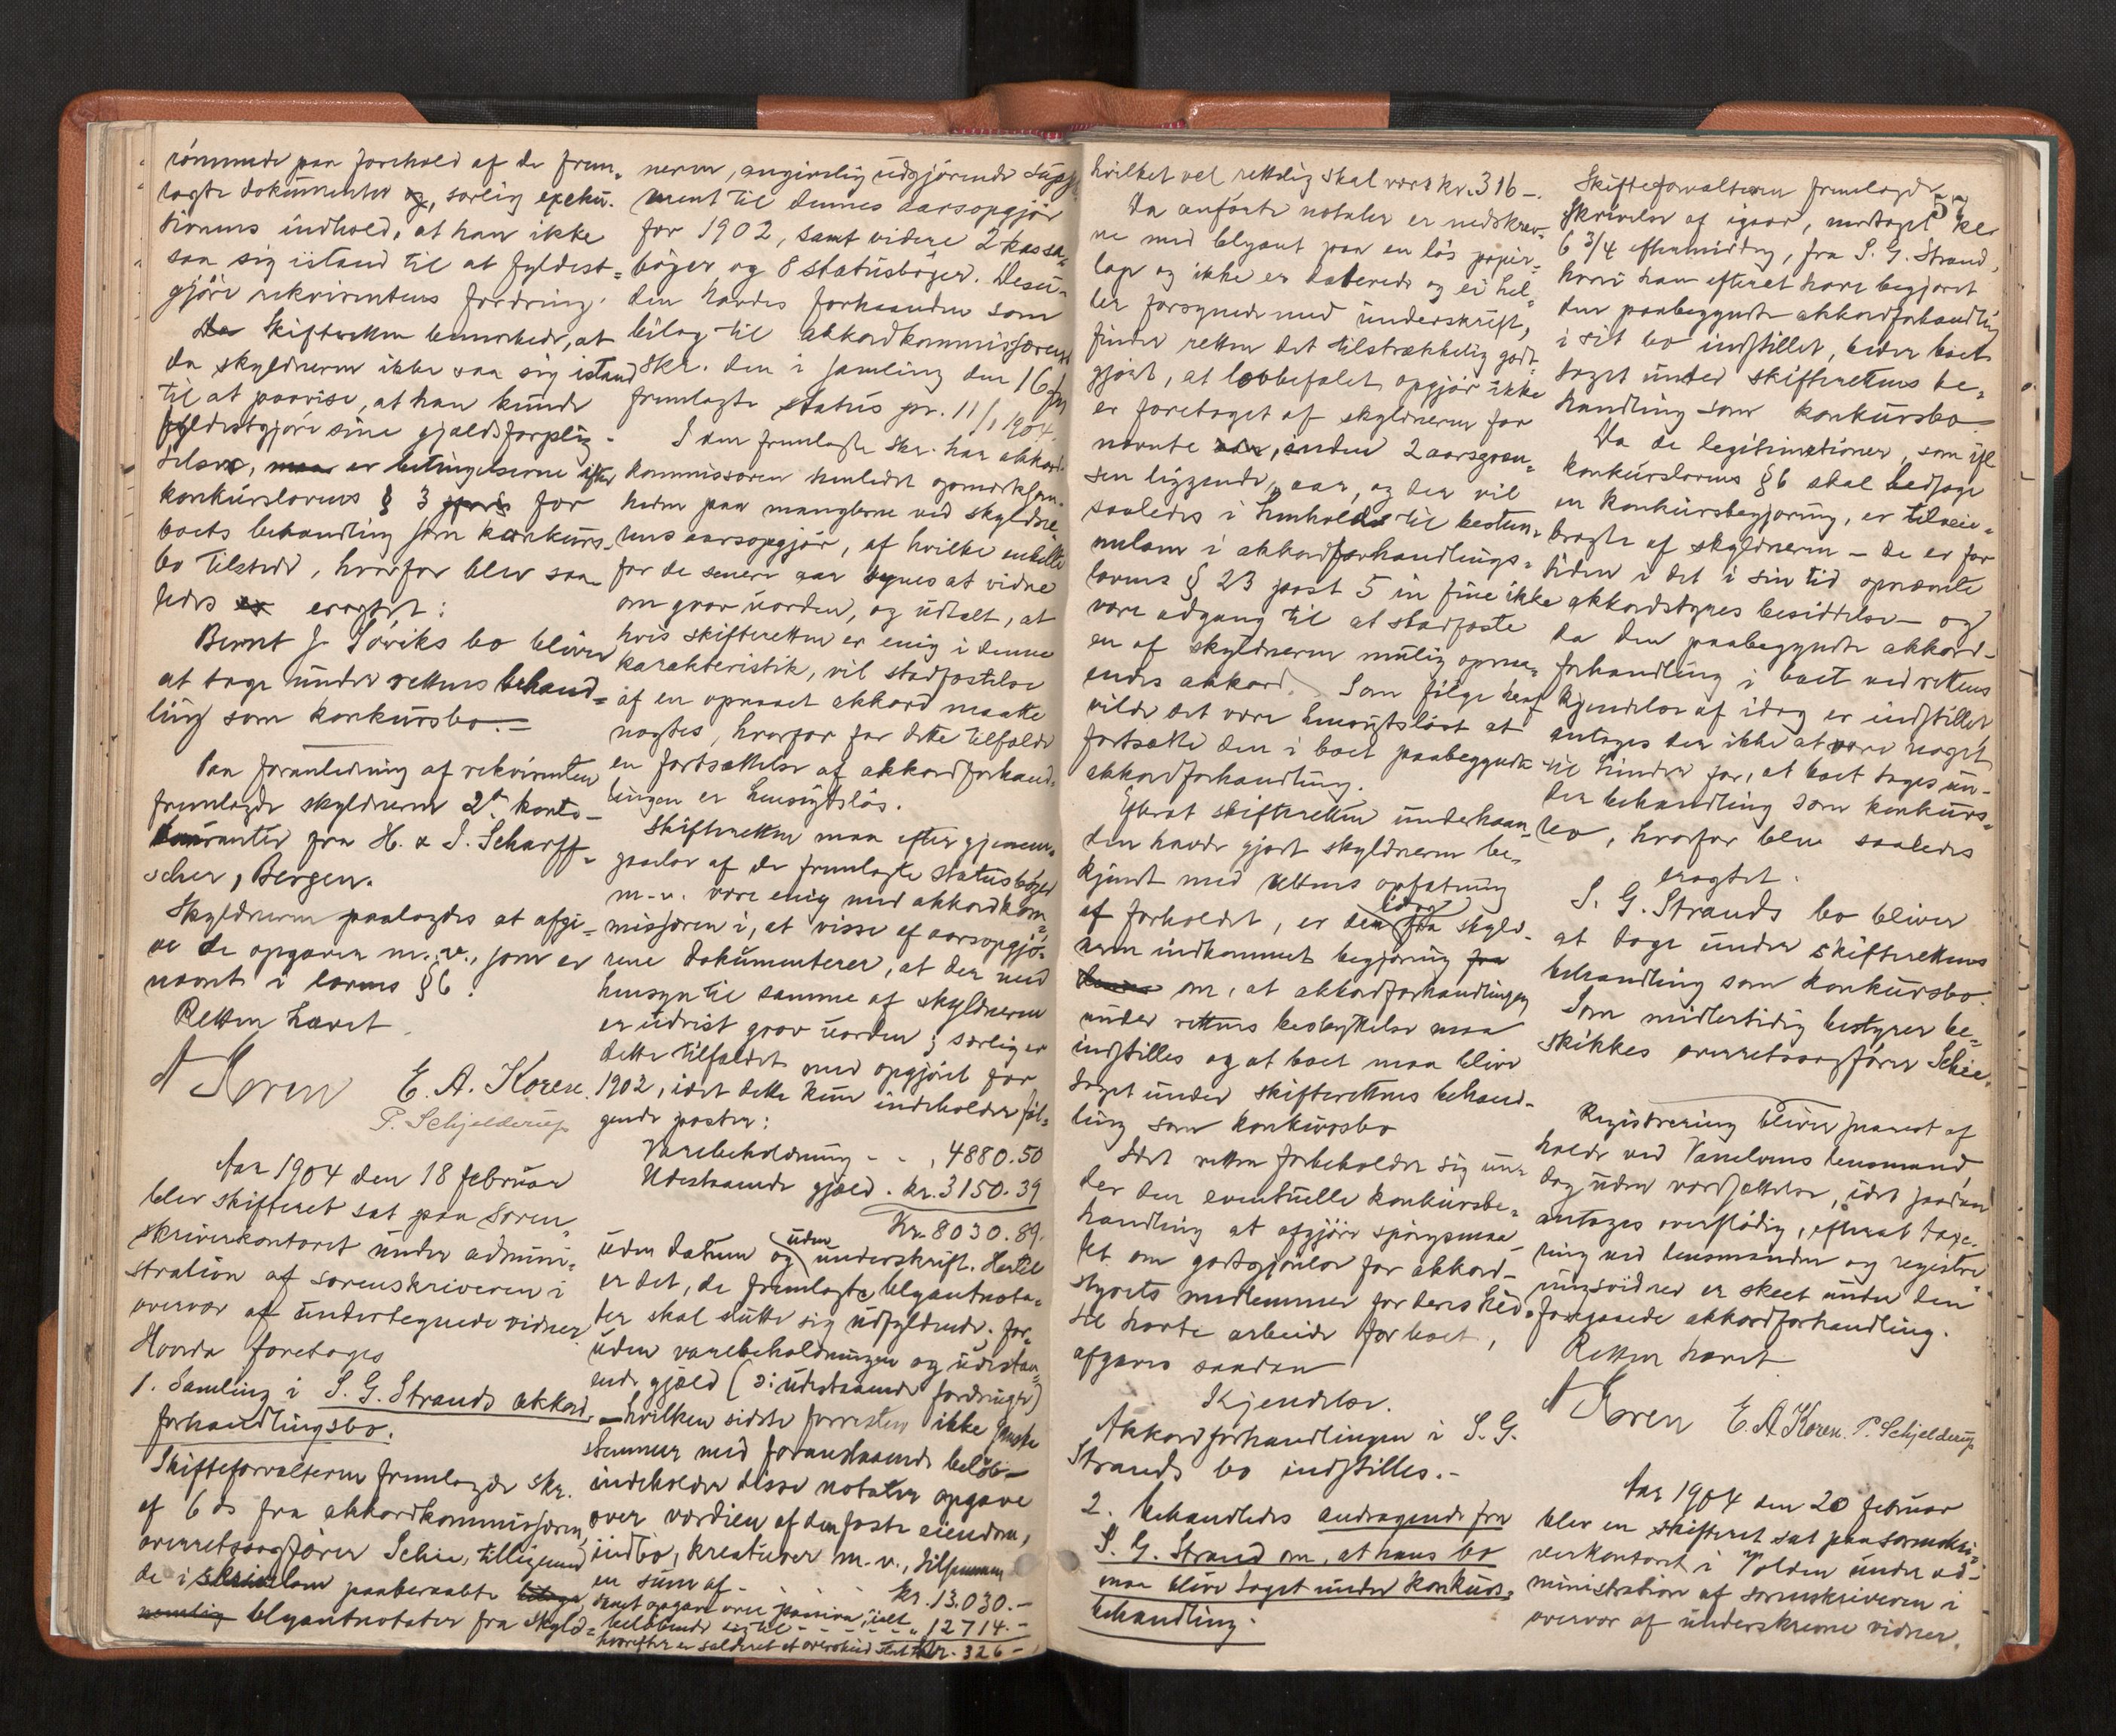 römmede paa forehold af de frem-
lagte dokumenter og, særlig exeku-
tionens indhold, at han ikke
saa sig istand til at fyldest-
gjöre rekvirentens fordring.
Da Skifteretten bemærkede, at
da skyldneren ikke saa sig istand
til at paavise, at han kunde
fyldestgjöre sine gjeldsforplig-
telser, maa er betingelserne efter
konkurslovens § 3 for
boets behandling som konkurs-
bo tilstede, hvorfor blev saa-
ledes eragtet:
Bernt J. Söviks bo bliver
at tage under rettens behand-
ling som konkursbo.-
Paa foranledning af rekvirenten
fremlagde skyldneren 2de konto-
kuranter fra H. & I. Scharff-
scher, Bergen.
Skyldneren paalagdes at afgi-
ve de opgaver m. v., som er
nævnt i lovens § 6.
Retten hævet.
A Koren E. A. Koren.
P. Schjelderup
Aar 1904 den 18 februar
blev skifteret sat paa soren-
skriverkontoret under admini-
stration af sorenskriveren i
overvær af undertegnede vidner
Hvorda foretoges
1. Samling i S. G. Strands akkord-
forhandlingsbo.
Skifteforvalteren fremlagde skr.
af 6 ds fra akkordkommissæren,
overretssagförer Schie, tilligemed
de i skrivelsen paaberaabte bilage,
nemlig blyantnotater fra skyld-
neren, angivelig udgjörende supple-
ment til dennes aarsopgjör
for 1902, samt videre 2 kassa-
böger og 8 statusböger. Desu-
den havdes forhaanden som
bilag til akkordkommissærens
skr. den i samling den 16
fremlagte status pr. 11/1 1904.
I den fremlagte skr. har akkord-
kommissæren henledet opmærksom-
heden paa manglerne ved skyldne-
rens aarsopgjör, af hvilke enkelte
for de senere aar synes at vidne
om grov uorden, og udtalt, at
hvis skifteretten er enig i denne
karakteristik, vil stadfæstelse
af en opnaaet akkord maatte
nægtes, hvorfor for dette tilfælde
en fortsættelse af akkordforhand-
lingen er hensigtslös.
Skifteretten maa efter gjennem-
gaaelse af de fremlagte statusböger
m. v. være enig med akkordkom-
missæren i, at visse af aarsopgjö-
rene dokumenterer, at der med
hensyn til samme af skyldneren
er udvist grov uorden; særlig er
dette tilfældet med opgjöret for
1902, idet dette kun indeholder föl-
gende poster:
Varebeholdning - - , 4880.50
Udestaaende gjæld . kr. 3150.39
Kr. 8030.89.
uden datum og uden underskrift. Hertil
er det, de fremlagte blyantnota-
ter skal slutte sig udfyldende; for-
uden varebeholdningen og udestaa-
ende gjæld (ɔ: udestaaende fordringer)
- hvilken sidste forresten ikke ganske
stemmer med foranstaaende belöb -
indeholder disse notater opgave
over værdien af den faste eiendom,
indbo, kreaturer m. v., tilsammen
en sum af - - - - kr. 13.030.-
samt opgave over passiva, ialt
belöbende sig til - - - - - „ 12714.-
hvorefter er salderet et overskud stort kr. 326-
hvilket vel rettelig skal være kr. 316-.
Da anförte notater er nedskrev-
ne med blyant paa en lös papir-
lap og ikke er daterede og ei hel-
ler forsynede med underskrift,
finder retten det tilstrækkelig godt-
gjort, at lovbefalet opgjör ikke
er foretaget af skyldneren for
nævnte aar, inden 2 aarsgræn-
sen liggende, aar, og der vil
saaledes i henhold til bestem-
melsen i akkordforhandlings-
lovens § 23 post 5 in fine ikke
være adgang til at stadfæste
en af skyldneren mulig opnaa-
endes akkord. Som fölge heraf
vilde det være hensigtslöst at
fortsætte den i boet paabegyndte
akkordforhandling.
Efterat skifteretten underhaan-
den havde gjort skyldneren be-
kjendt med rettens opfatning
af forholdet, er der idag fra skyld-
neren indkommet begjæring fra
om, at akkordforhandlingen
under rettens beskyttelse maa
indstilles og at boet maa blive
taget under skifterettens behand-
ling som konkursbo
Idet retten forbeholder sig un-
der den eventuelle konkursbe-
handling at afgjöre spörgsmaa-
let om godtgjörelse for akkord-
styrets medlemmer for deres hid-
til havte arbeide for boet,
afgaves saadan
Kjendelse.
Akkordforhandlingen i S. G.
Strands bo indstilles.-
2. behandledes andragende fra
S. G. Strand om, at hans bo
maa blive taget under konkurs-
behandling.
57
Skifteforvalteren fremlagde
skrivelse af igaar, modtaget kl.
6 3/4 eftermiddag, fra S. G. Strand,
hvori han efteret have begjæret
den paabegyndte akkordforhandling
i sit bo indstillet, beder boet
taget under skifterettens be-
handling som konkursbo.-
Da de legitimationer, som ifl
konkurslovens § 6 skal ledsage
en konkursbegjæring, er tilveie-
bragte af skyldneren - de er for
tiden i det i sin tid opnævnte
akkordstyres besiddelse - og
da den paabegyndte akkord-
forhandling i boet ved rettens
kjendelse af idag er indstillet
antages der ikke at være noget
til hinder for, at boet tages un-
der behandling som konkurs-
bo, hvorfor blev saaledes
eragtet.
S. G. Strands bo bliver
at tage under skifterettens
behandling som konkursbo.
Som midlertidig bestyrer be-
skikkes overretssagförer Schie.
Registrering bliver snarest af
holde ved Vanelvens lensmand,
dog uden værdsættelse, idet saadan
antages overflödig, efterat taxe-
ring ved lensmanden og registre
ringsvidner er skeet under den
foregaaede akkordforhandling.
Retten hævet
A Koren E. A Koren. P. Schjelderup
Aar 1904 den 20 februar
blev en skifteret sat paa sorenskri-
verkontoret i Volden under ad-
ministration af sorenskriveren i
overvær af underskrevne vidner.